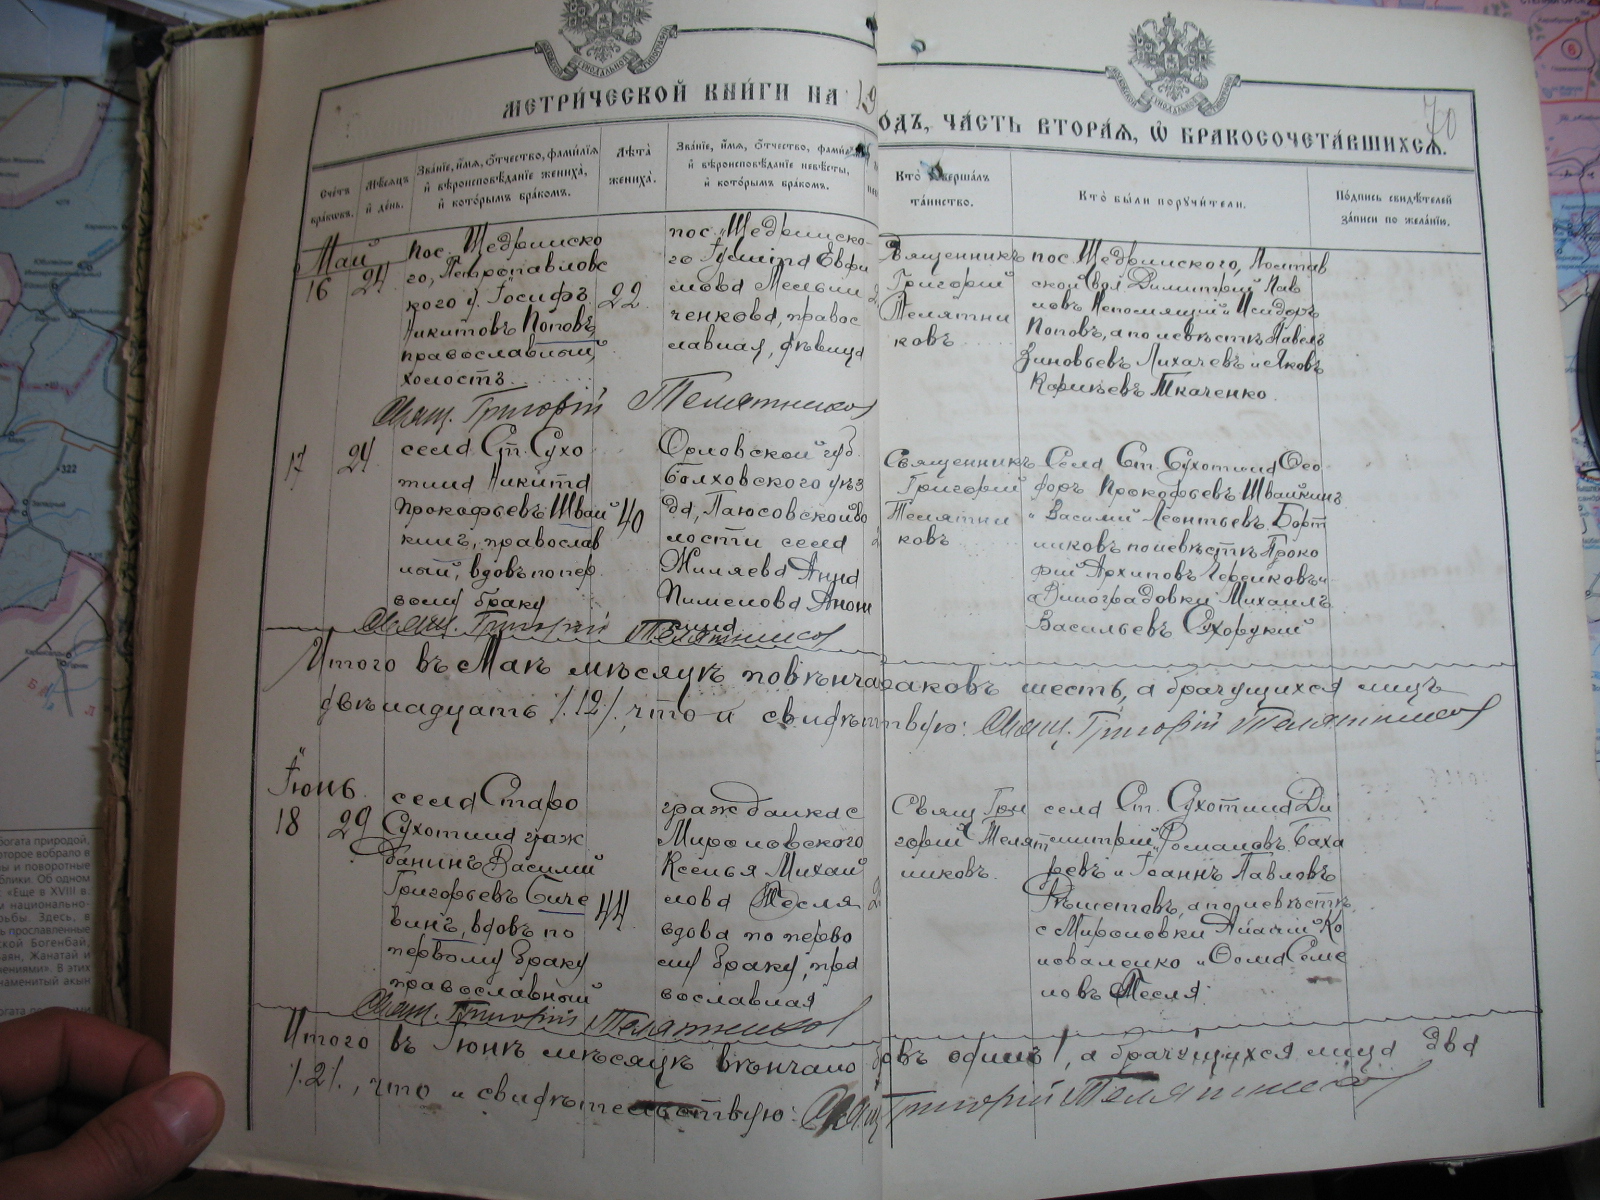 МЕТРИ́ЧЕСКОЙ КНИ́ГИ НА 19
ОДЪ, ЧА́СТЬ ВТОРА́Я, Ѡ БРАКОСОЧЕТА́ВШИХСЯ.
70
Сче́тъ бра́ковъ.
Мѣ́сяцъ и де́нь.
Зва́ніе, и́мя, о́тчество, фами́лія
и вѣроисповѣ́даніе жениха́,
и кото́рымъ бра́комъ.
Лѣта̀ жениха̀.
Зва́ніе, и́мя, о́тчество, фами́
и вѣроисповѣ́даніе невѣ́сты,
и кото́рымъ бра́комъ.
Кто̀ соверша́лъ
та́инство.
Кто̀ бы́ли поручи́тели.
По́дпись свидѣ́телей
за́писи по жела́нію.
Май
16
24
пос. Щедринско
го, Петропавловс
кого у. Іосифъ
Никитовъ Поповъ,
православный,
холостъ.
22
пос. Щедринско-
го
Евфи
мова Мельни
ченкова, правос
лавная, дѣвица
Священникъ
Григорій
Телятни
ковъ
пос. Щедринского, Полтав
ской Димитрій Пав
ловъ Непомнящій и Исидоръ
Поповъ, а по невѣстѣ Павелъ
Зиновьевъ Лихачевъ и Яковъ
Корнѣевъ Ткаченко.
Свящ. Григорій Телятниковъ
17
24
села Ст. Сухо
тина Никита
Прокофьевъ Швай
кинъ, православ
ный, вдовъ по пер
вому браку
40
Орловской губ.
Болховского уѣз
да, Паюсовской во
лости села
Жиляева Анна
Пименова Анош
кина
Священникъ
Григорій
Телятни
ковъ
Села Ст. Сухотина Ѳео
доръ Прокофьевъ Швайкинъ
и Василій Леонтьевъ Борт
никовъ по невѣстѣ Проко
фій Архиповъ Черниковъ и
д. Виноградовки Михаилъ
Васильевъ Сухорукій
Свящ. Григорій Телятниковъ
Итого въ Маѣ мѣсяцѣ повѣнча раковъ шесть, а брачущихся лицъ
двѣнадцать /.12/., что и свидѣт твую: Свящ. Григорій Телятниковъ
Іюнь.
18
29
села Старо
Сухотина граж
данинъ Василій
Григорьевъ Сиче
винъ, вдовъ по
первому браку
православный
44
гражданка с
Мироновского
Ксенья Михай
лова Тесля
вдова по перво
му браку, пра
вославная
Свящ Гри
горій Телят
никовъ.
села Ст. Сухотина Ди
митрій Романовъ Баха
ревъ и Іоаннъ Павловъ
Рѣшетовъ, а по невѣстѣ
с Мироновки Ананій Ко
новаленко и Ѳома Семе
новъ Тесля.
Свящ. Григорій Телятниковъ
Итого въ Іюнѣ мѣсяцѣ вѣнчано бовъ одинъ 1, а брачущихся лица два
/.2/., что и свидѣтельствую: Свящ Григорій Телятниковъ
+322
6
богата природой,
которое вобрало в
ы и поворотные
блики. Об одном
: «Еще в XVIII в.
м национально-
рьбы. Здесь, в
ь прославленные
ской Богенбай,
аян, Жанатай и
чениями». В этих
наменитый акын